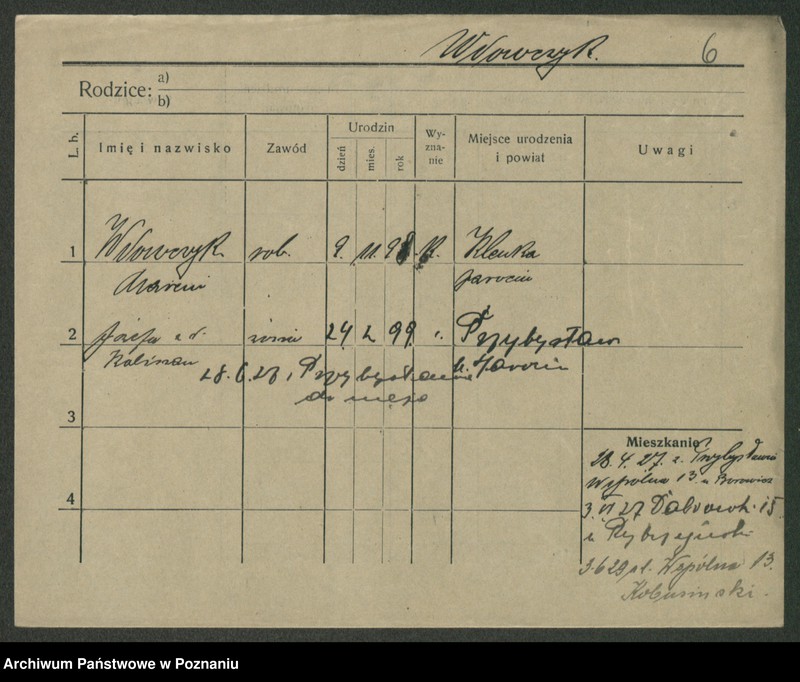 Wlowczyk. 6
Rodzice: a)
b)
L. b.
Imię i nazwisko
Zawód
Urodzin
dzień
mies.
rok
Wy-
zna-
nie
Miejsce urodzenia
i powiat
Uwagi
1 Wlowczyk rob. 9. 11. 98. Klenka
Marcin Jarocin
2 Józefa z d. żona 24 2 99 Przybysław
28.6.28 z Przybysławia k. Jarocin
do męża
3
Mieszkanie
28.4.27. z Przybysławia
4 Wspólna 13 u
3.VI 27 Dąbrowsk. 15
u
3.6.29 ul. Wspólna 13.
Kobusinski.
Archiwum Państwowe w Poznaniu